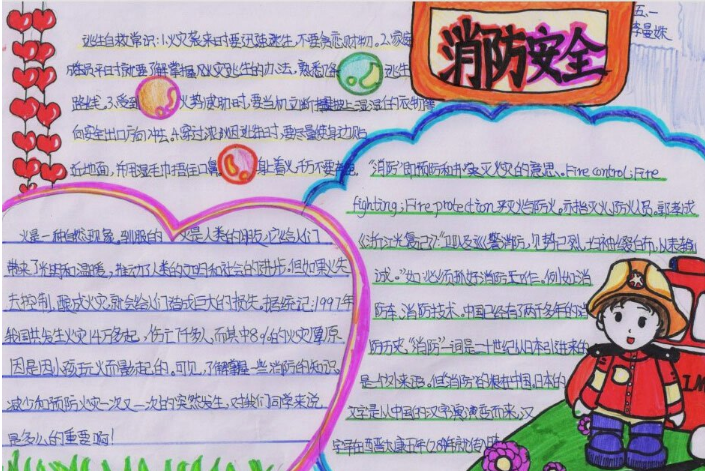 消防安全
五、一
李曼姝
逃生自救常识:1.火灾袭来时要迅速逃生,不要贪恋财物。2.家庭
成员平时就要了解掌握火灾逃生的办法,熟悉 逃生
路线。3.受到 火势威胁时,要当机立断披上浸湿的衣物
向安全出口方向冲去。4.穿过浓烟逃生时,要尽量使身边贴
近地面,并用湿毛巾捂住口鼻 身上着火,千万不要奔跑。
火是一种自然现象,驯服的 火是人类的朋友,它给人们
带来了光明和温暖,推动了人类的文明和社会的进步。但如果火失
去控制,酿成火灾,就会给人们造成巨大的损失。据统计:1997年
我国共发生火灾14万多起,伤亡 千多人,而其中8%的火灾原
因是因小孩玩火而引起的,可见,了解掌握一些消防的知识,
减少和预防火灾一次又一次的突然发生,对我们同学来说
是多么的重要啊!
“消防”即预防和扑灭火灾的意思。Fire control;Fire
fighting;Fire protection 救火防火,亦指灭火防火人员。郭孝成
《浙江光复记》
试。” 必须抓好消防工作。例如消
防车,消防技术。中国已经有了两千多年的消
防历史,“消防”一词是二十世纪从日本引进来的
是个外来语,但消防的根在中国,日本的
文字是从中国的汉字演变而来,汉
字